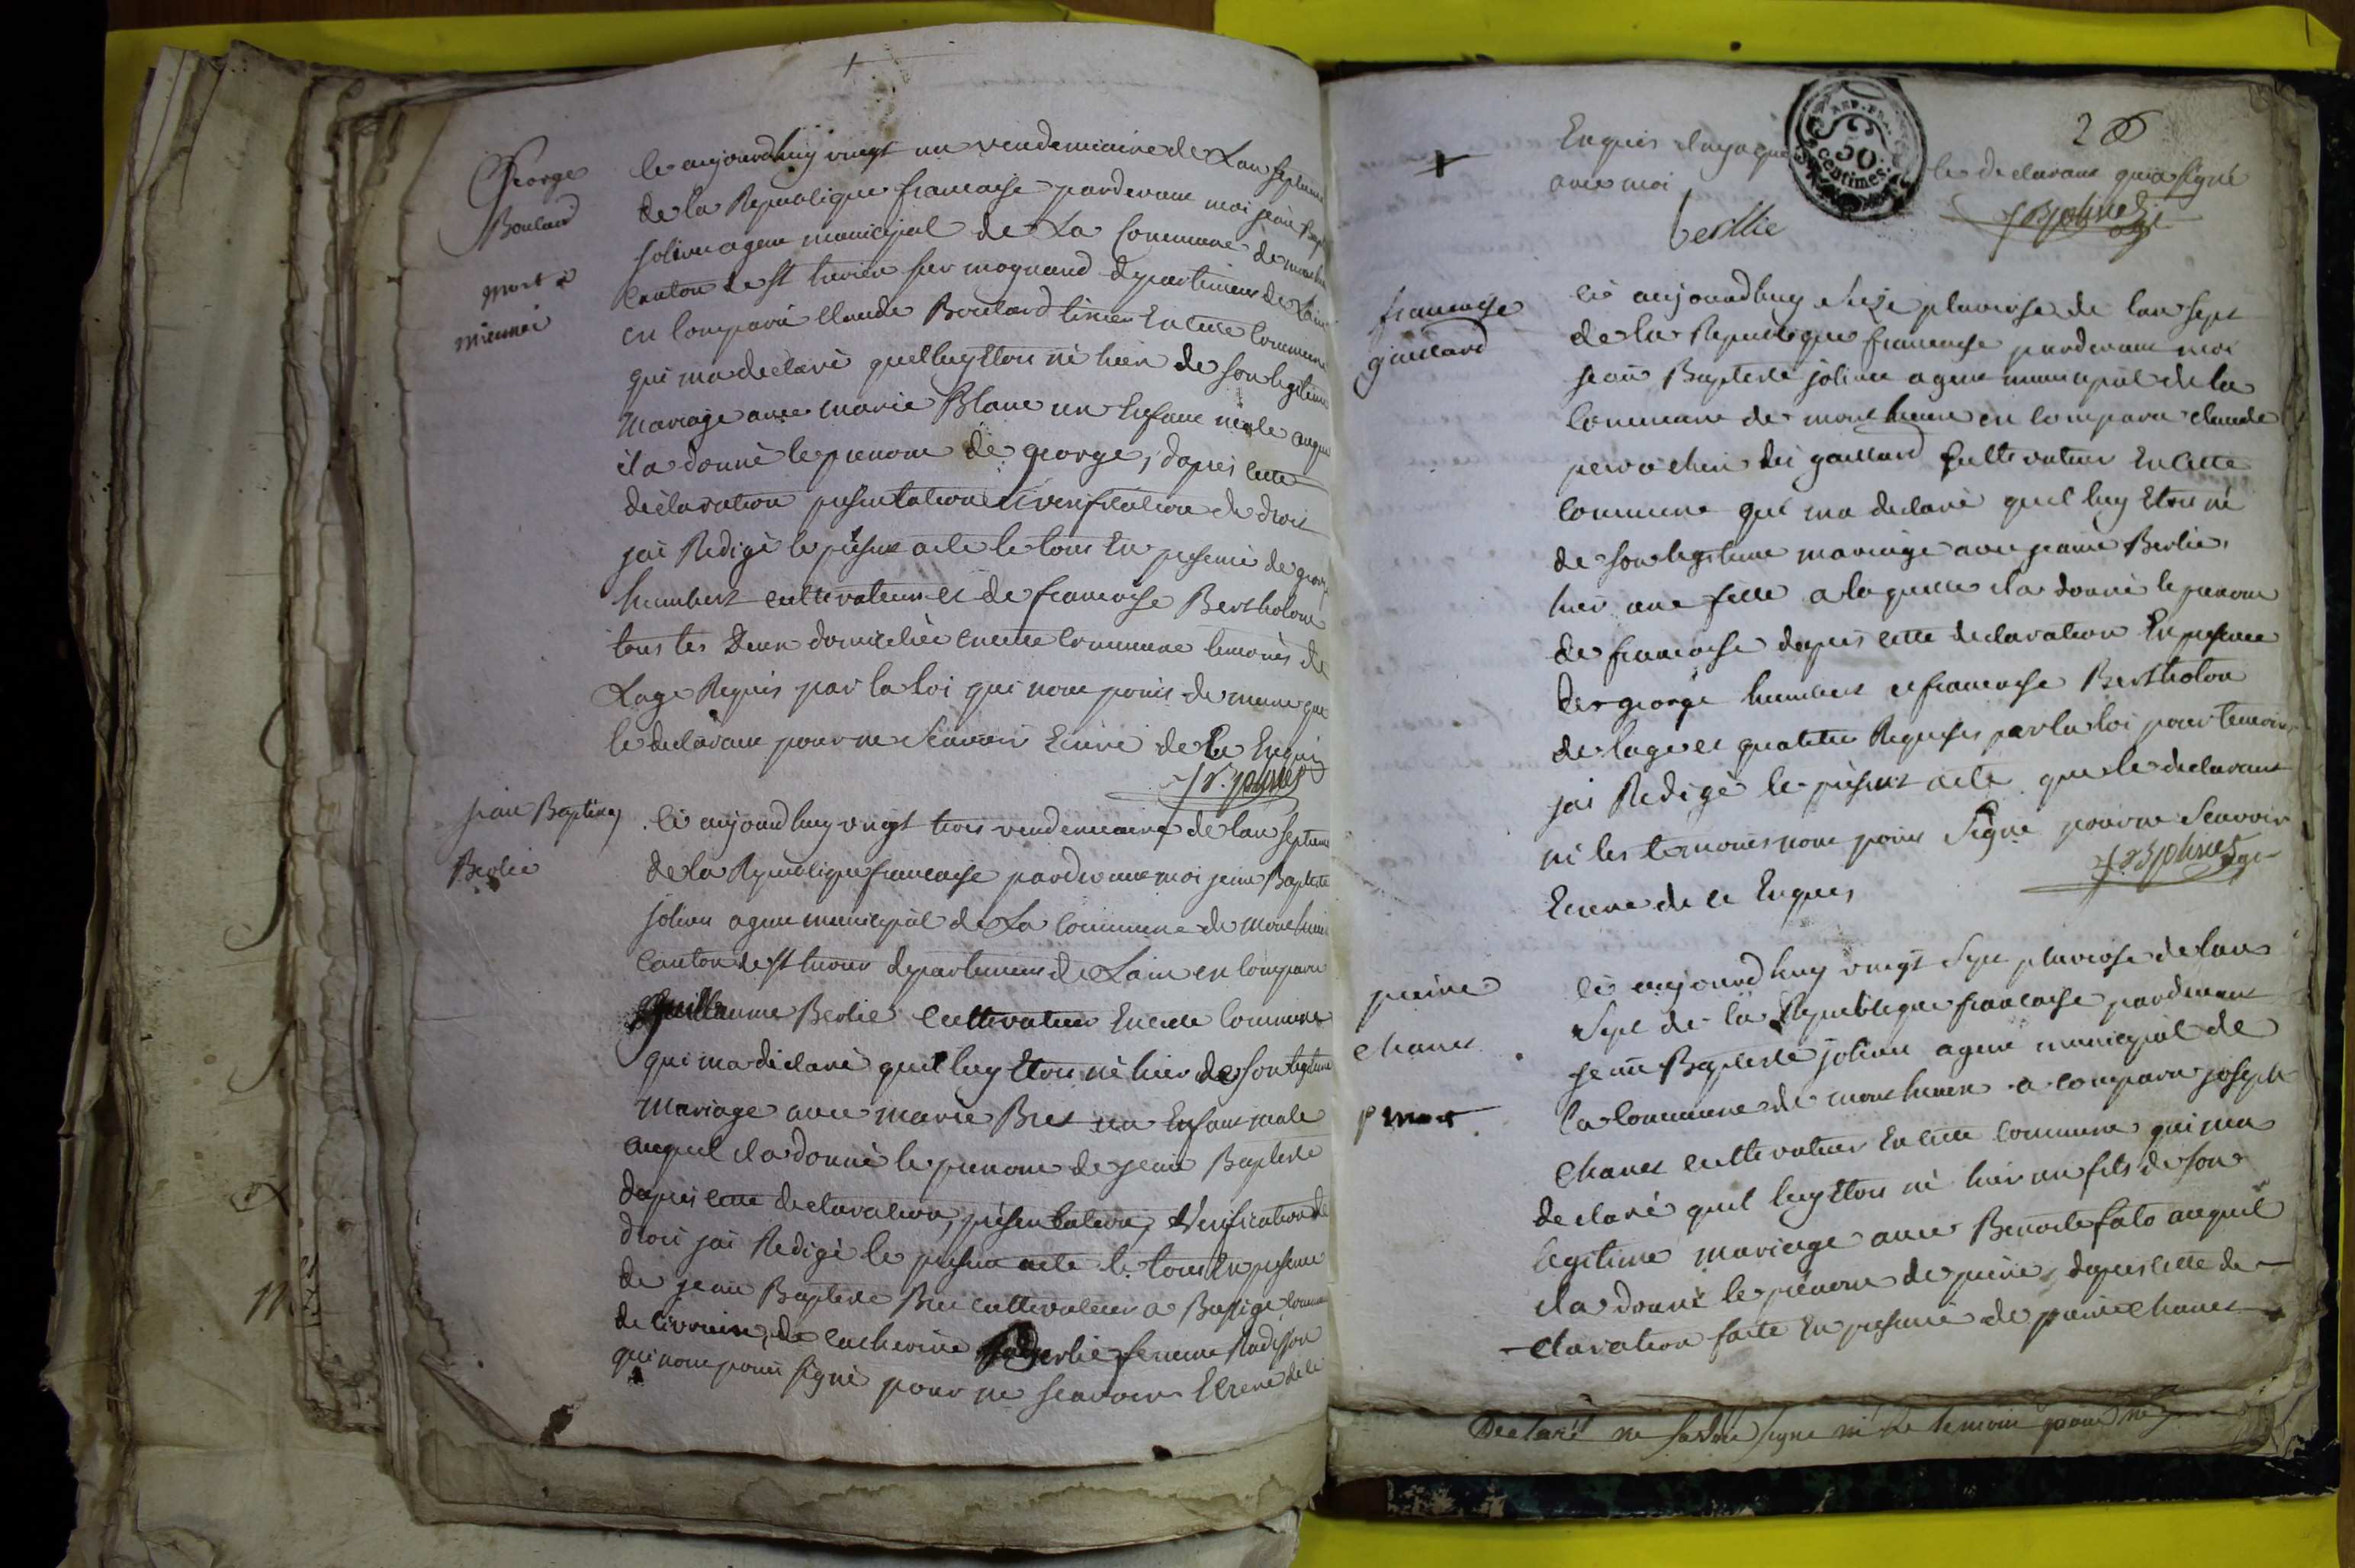 George
Bouland
mort a
mionnai
le aujourdhuy vingt un vendemiaire de Lan septieme
de la Republique francaise pardevant moi jean Bapt
jolivet agent municipal de La Commune de
Canton de st trivier sur mognand departement de Lain
en Comparu Claude Boulard en cette Commune
qui ma declaré quil luy Etoit né hier de son legitime
mariage avec marie Blanc un Enfant male auquel
il a donné le prenom de george, dapres cette
declaration presentation et verification de droit
jai Redigé le present acte le tout En presence de george
humbert cultivateur et de francoise Bertholon
tous les Deux domicilies en cette Commune temoins de
Lage Requis par la loi qui nont point de meme que
le declarant pour ne Scavoir Ecrire de Ce Enquis
jean Baptiste
Berlie
le aujourdhuy vingt trois vendemiaire de lan septieme
de la Republique francaise pardevant moi jean Baptiste
jolivet agent municipal de La Commune de monthieux
Canton de st trivier departement de Lain en Comparu
Guillaume Berlie Cultivateur En cette Commune
qui ma declaré quil luy Etoit né hier de son legitime
mariage avec marie Bret un Enfant male
auquel il a donné le prenom de jean Baptiste
dapres cette declaration, presentation, et Verification de
droit jai Redigé le present acte le tout En presence
de jean Baptiste Bret cultivateur a Commune
de Civrieux, de catherine Berlie femme
qui nont point signé pour ne scavoir Ecrire de ce
2
REP. FRA.
50
centimes
Enquis le declarant qui a signé
avec moi
berllie
francoise
gaillard
le aujourdhuy seize pluviose de lan sept
de la Republique francaise pardevant moi
jean Baptiste jolivet agent municipal de la
Commune de monthieux en comparu claude
dit gaillard Cultivateur En Cette
Commune qui ma declaré quil luy Etoit né
de son legitime mariage avec jeanne Berlie,
hier une fille a laquelle il a donné le prenom
de francoise dapres cette declaration En presence
de george humbert et francoise Bertholon
de lage et qualités Requises par la loi pour temoins
jai Redigé le present acte que le declarant
ni les temoins nont point Signé pour ne Scavoir
Ecrire de ce Enquis
pierre
Chanet
mort
le aujourdhuy vingt Sept pluviose de lan
Sept de la Republique francaise pardevant
jean Baptiste jolivet agent municipal de
la Commune de monthieux a comparu joseph
Chanet cultivateur En cette Commune qui ma
declaré quil luy Etoit né hier un fils de son
legitime mariage avec Benoite auquel
il a donné le prenom de pierre dapres cette de-
-claration faite En presence de pierre Chanet
Declaré ne Savoir signe ni Le temoin